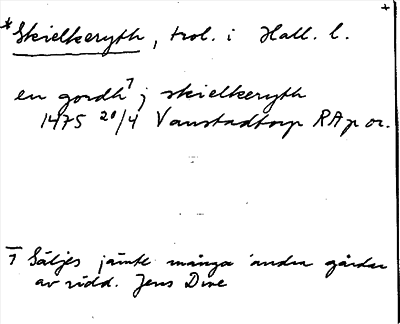 +
*Skielkeryth, trol. i Hall. l.
en gordh⁊ j skielkeryth
1475 20/4 Vanstadtorp RA p or.
⁊ Säljes jämte många andra gårdar
av ridd. Jens Due